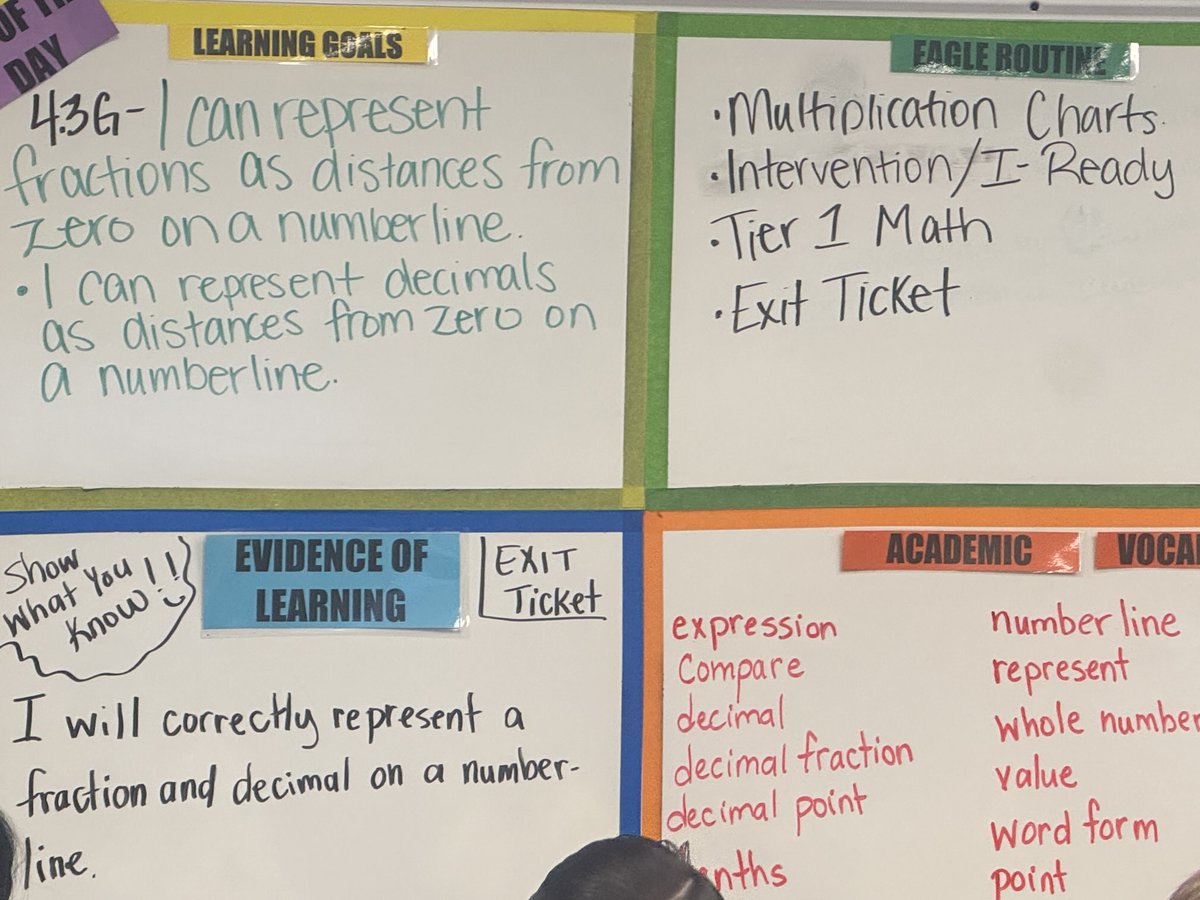 OF TH
DAY
LEARNING GOALS
4.3G- I can represent
fractions as distances from
zero on a numberline.
• I can represent decimals
as distances from zero on
a numberline.
EAGLE ROUTINE
• Multiplication Charts.
• Intervention/I-Ready
• Tier 1 Math
• Exit Ticket
Show
What You !!
Know
EVIDENCE OF
LEARNING
EXIT
Ticket
I will correctly represent a
fraction and decimal on a number-
line.
ACADEMIC VOCA
expression
Compare
decimal
decimal fraction
decimal point
number line
represent
whole number
value
word form
point